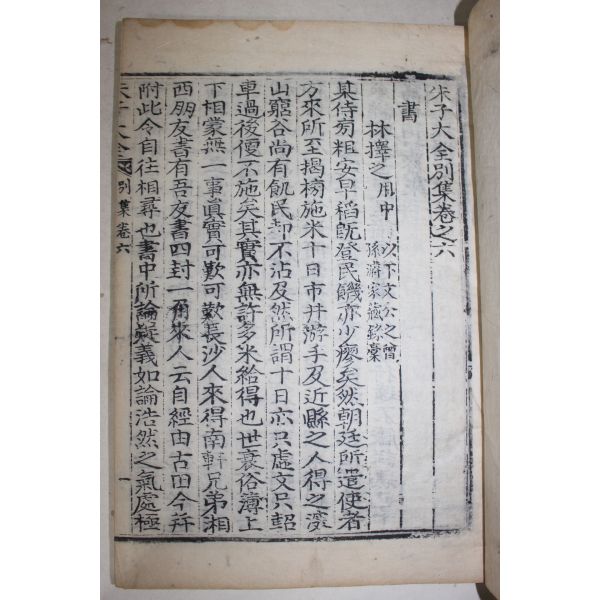 朱子大全別集卷之六
書
林擇之用中 以下文公之曾
孫濬家藏錄藁
某侍旁粗安早稻旣登民饑亦少瘳矣然朝廷所遣使者
方來所至揭榜施米十日市井游手及近縣之人得之深
山窮谷尚有飢民却不沾及然所謂十日亦只虛文只軺
車過後便不施矣其實亦無許多米給得也世衰俗薄上
下相蒙無一事眞實可歎可歎長沙人來得南軒兄弟湘
西朋友書有吾友書四封一角來人云自經由古田今幷
附此令自往相尋也書中所論疑義如論浩然之氣處極
朱子大全 別集卷六 一